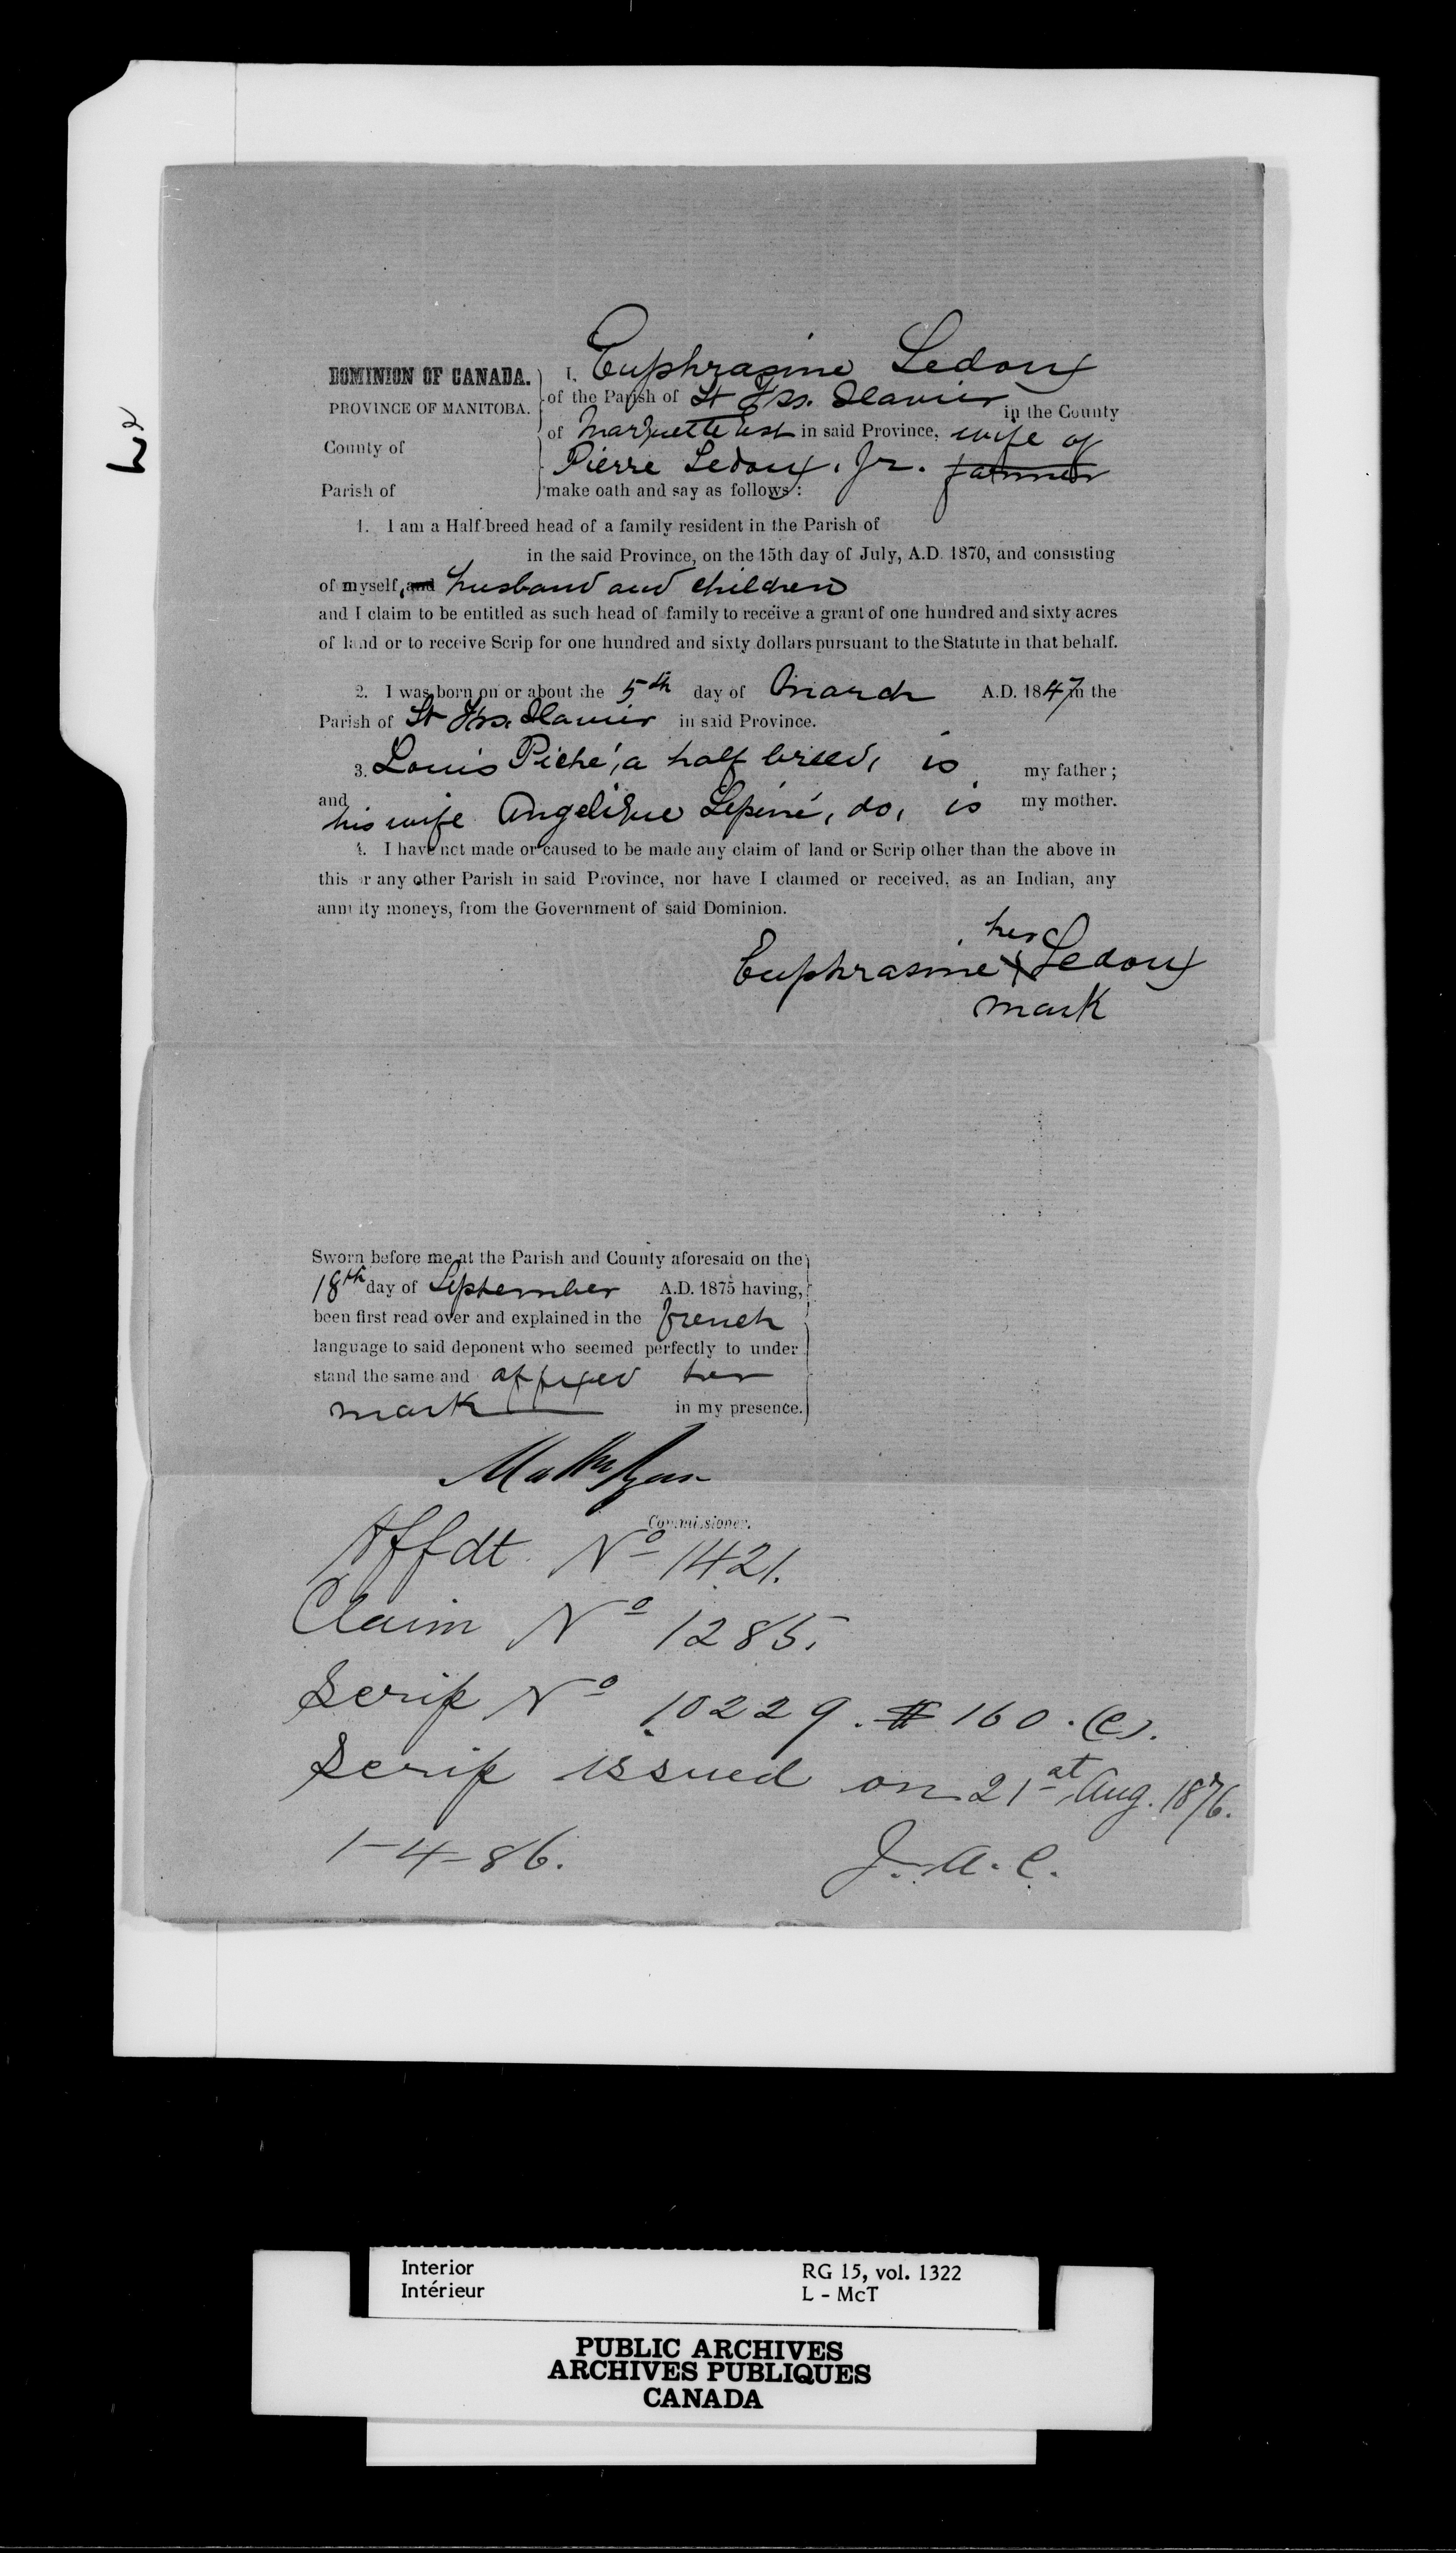 W2
DOMINION OF CANADA.
PROVINCE OF MANITOBA.
County of
Parish of
I, Euphrasine Ledoux
of the Parish of St Frs. Xavier in the County
of Marquette East in said Province, wife of
Pierre Ledoux, Jr. farmer
make oath and say as follows:
1. I am a Half-breed head of a family resident in the Parish of
in the said Province, on the 15th day of July, A.D. 1870, and consisting
of myself, and husband and children
and I claim to be entitled as such head of family to receive a grant of one hundred and sixty acres
of land or to receive Scrip for one hundred and sixty dollars pursuant to the Statute in that behalf.
2. I was born on or about the 5th day of March A.D. 1847 in the
Parish of St Frs. Xavier in said Province.
3. Louis Piché, a half breed, is my father;
and his wife Angelique Lepiné, do, is my mother.
4. I have not made or caused to be made any claim of land or Scrip other than the above in
this or any other Parish in said Province, nor have I claimed or received, as an Indian, any
annuity moneys, from the Government of said Dominion.
her
Euphrasine X Ledoux
mark
Sworn before me at the Parish and County aforesaid on the
18th day of September A.D. 1875 having,
been first read over and explained in the french
language to said deponent who seemed perfectly to under
stand the same and affixed her
mark in my presence.
Matt Ryan
Commissioner.
Affdt. No 1421.
Claim No 1285.
Scrip No 10229. $160. (C).
Scrip issued on 21st Aug. 1876.
1-4-86. J. A. C.
Interior
Intérieur
RG 15, vol. 1322
L - McT
PUBLIC ARCHIVES
ARCHIVES PUBLIQUES
CANADA